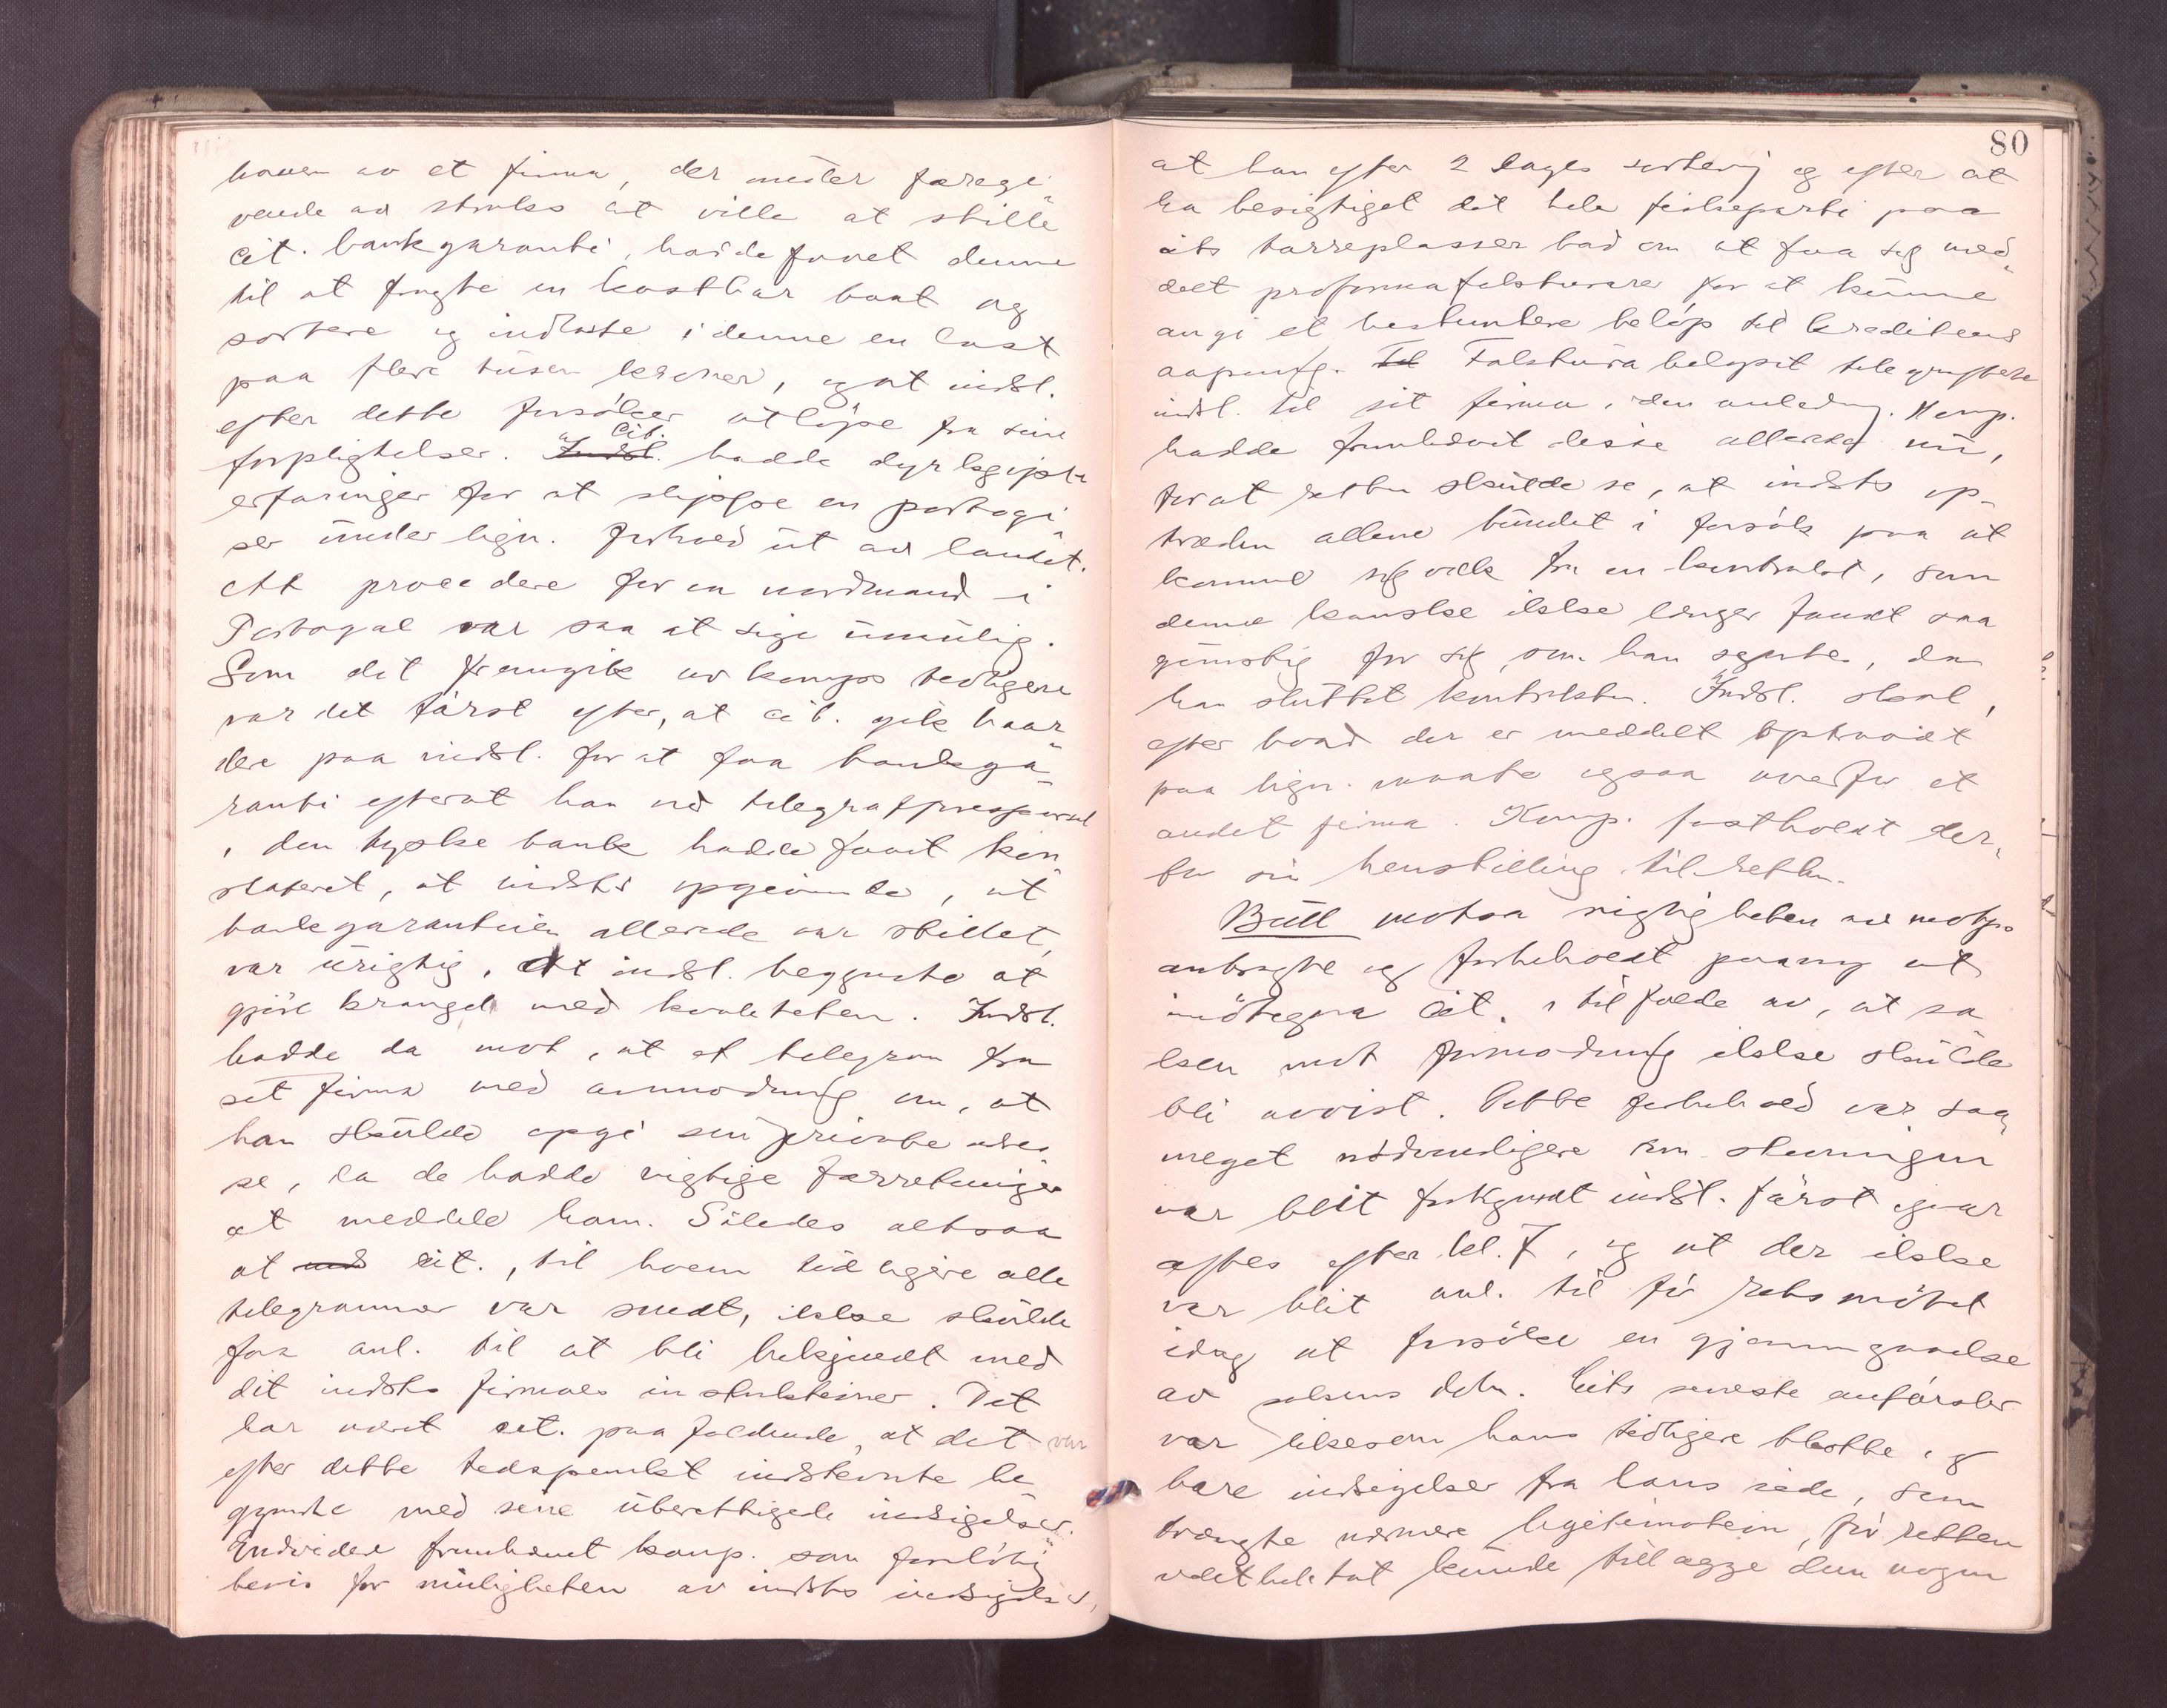 haven av et firma, der under foregi-
vende av straks at ville at stille
cit. bankgaranti, hadde faaet denne
til at fragte en kostbar baat og
sortere og indlaste i denne en last
paa flere tusen kroner, og at indst.
efter dette forsøker at løpe fra sine
forpligtelser. Indst. Cit. hadde dyrkjøpte
erfaringer for at slippe en portugi-
ser under lign. forhold ut av landet.
At procedere for en nordmand i
Portugal var saa at sige umulig.
Som det fremgik av komps tidligere
var det først efter, at cit. gik haar-
dere paa indst. for at faa bankga-
ranti efterat han ved telegrafforespørsel
i den tyske bank hadde faaet kon-
stateret, at indsts opgivende, at
bankgarantien allerede var stillet,
var urigtig, at indst. begyndte at
gjøre krangel med kvaliteten. Indst.
hadde da mot, at et telegram fra
sit firma med anmodning om, at
han skulde opgi sin private adres-
se, da de hadde vigtige forretninger
at meddele ham. Således altsaa
at cit., til hvem tidligere alle
telegrammer var sendt, ikke skulde
faa anl. til at bli bekjendt med
dit indsts firmaes instruktioner. Det
har været cit. paafaldende, at det var
efter dette tidspunkt indstevnte be-
gyndte med sine uberettigede indsigelser.
Endvidere fremhævet komp. som foreløbig
bevis for muligheten av indsts indsigelser,
80
at han efter 2 dages sortering og efter at
ha besigtiget det hele fiskeparti paa
cits tørreplasser bad om at faa sig med-
delt proformafakturaer for at kunne
angi et bestemtere beløp til kreditens
aapning. Fakturabeløpet telegraferte
indst. til sit firma i den anledning. Komp.
hadde fremhævet disse allerede nu,
for at retten skulde se, at indsts op-
træden allene bundet i forsøk paa at
komme sig væk fra en kontrakt, som
denne kanske ikke længer fandt saa
gunstig for sig, som han ventet, da
han sluttet kontrakten. Indst. skal,
efter hvad der er meddelt optraadt
paa lign. maate ogsaa overfor et
andet firma. Komp. fastholdt der-
for sin henstilling til retten.
Bull motsa rigtigheten av motp.
anbragte og forbeholdt paany at
imøtegaa cit. i tilfælde av, at sa-
ken mot formodning ikke skulde
bli avvist. Dette forbehold var saa
meget nødvendigere som stevningen
var blit forkyndt indst. først igaar
aftes efter kl. 7, og at der ikke
var blit anl. til før retsmøtet
idag at forsøke en gjennemgaaelse
av sakens dok. Cits seneste anførsler
var likesom hans tidligere bløtte, og
bare indsigelser fra hans side, som
trængte nærmere legitimation, før retten
vedtektet kunde tillægge dem nogen